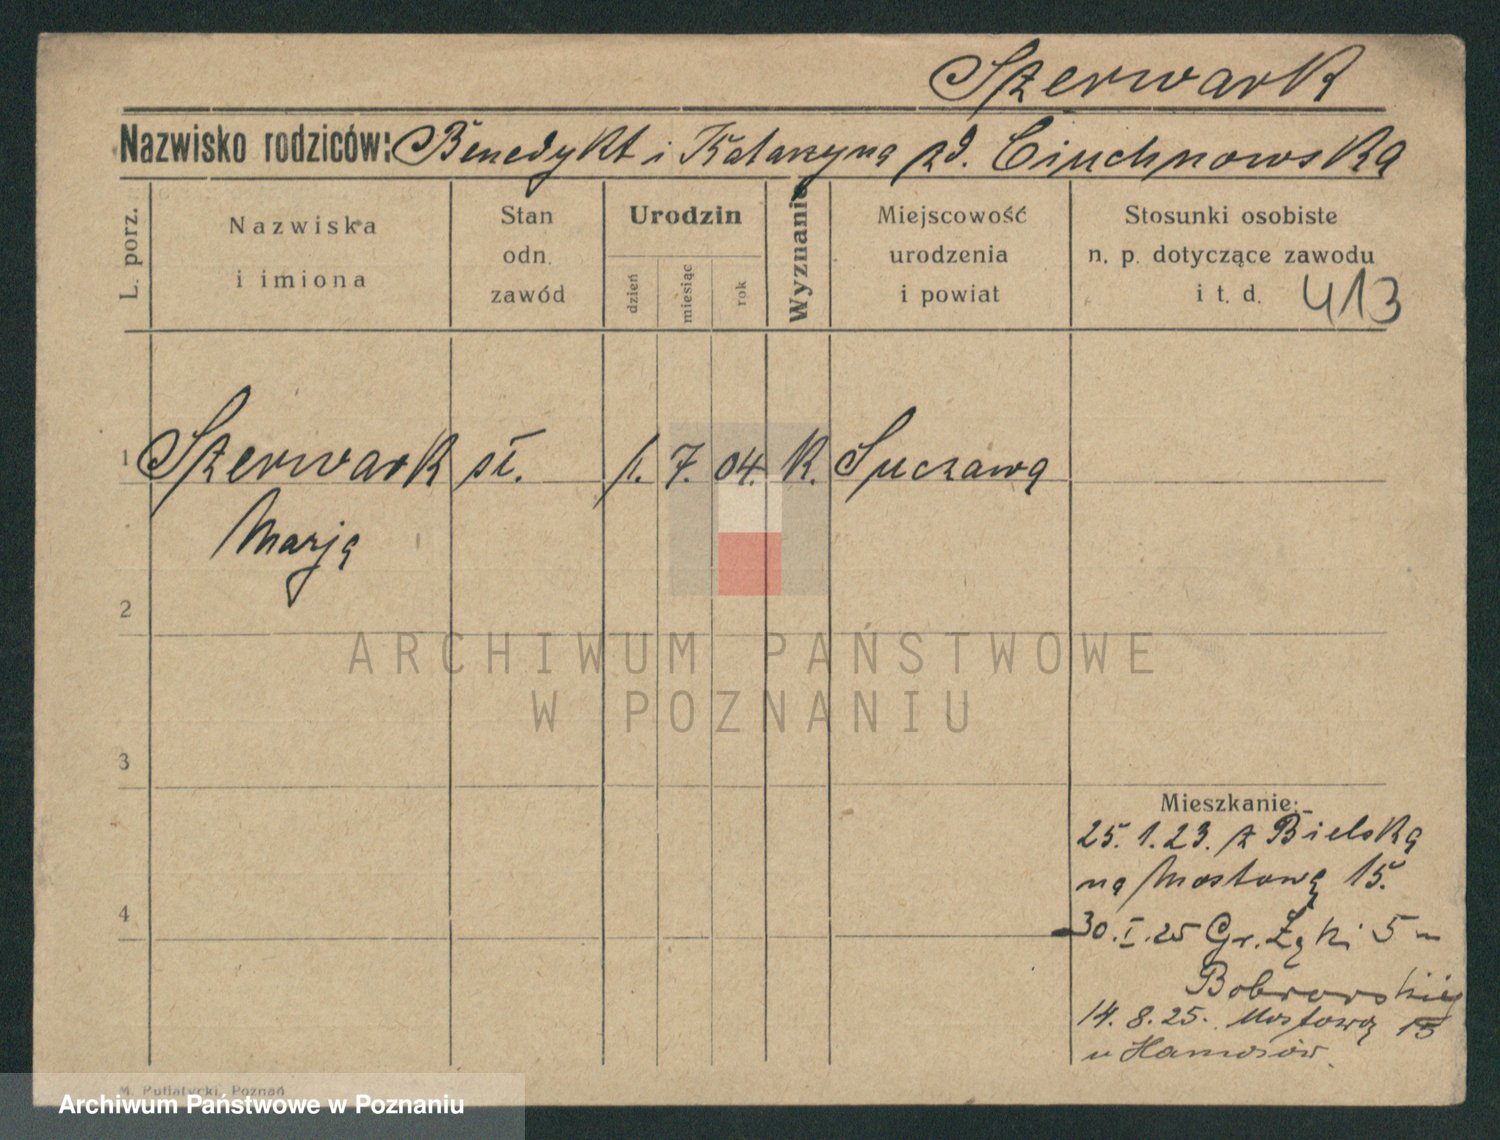 Szerwark
Nazwisko rodziców: Benedykt i Katarzyna zd. Ciuchnowska
L. porz.
Nazwiska
i imiona
Stan
odn.
zawód
Urodzin
dzień
miesiąc
rok
Wyznanie
Miejscowość
urodzenia
i powiat
Stosunki osobiste
n. p. dotyczące zawodu
i t. d. 413
1 Szerwark sł. 1. 7. 04. K. Suczawa
Marja
2
3
4
ARCHIWUM PAŃSTWOWE
W POZNANIU
Mieszkanie:
25. 1. 23. z Bielska
na Mostową 15.
30. I. 25 Gr. Łąki 5
14. 8. 25. Mostowa 15
u
M. Putiatycki, Poznań
Archiwum Państwowe w Poznaniu